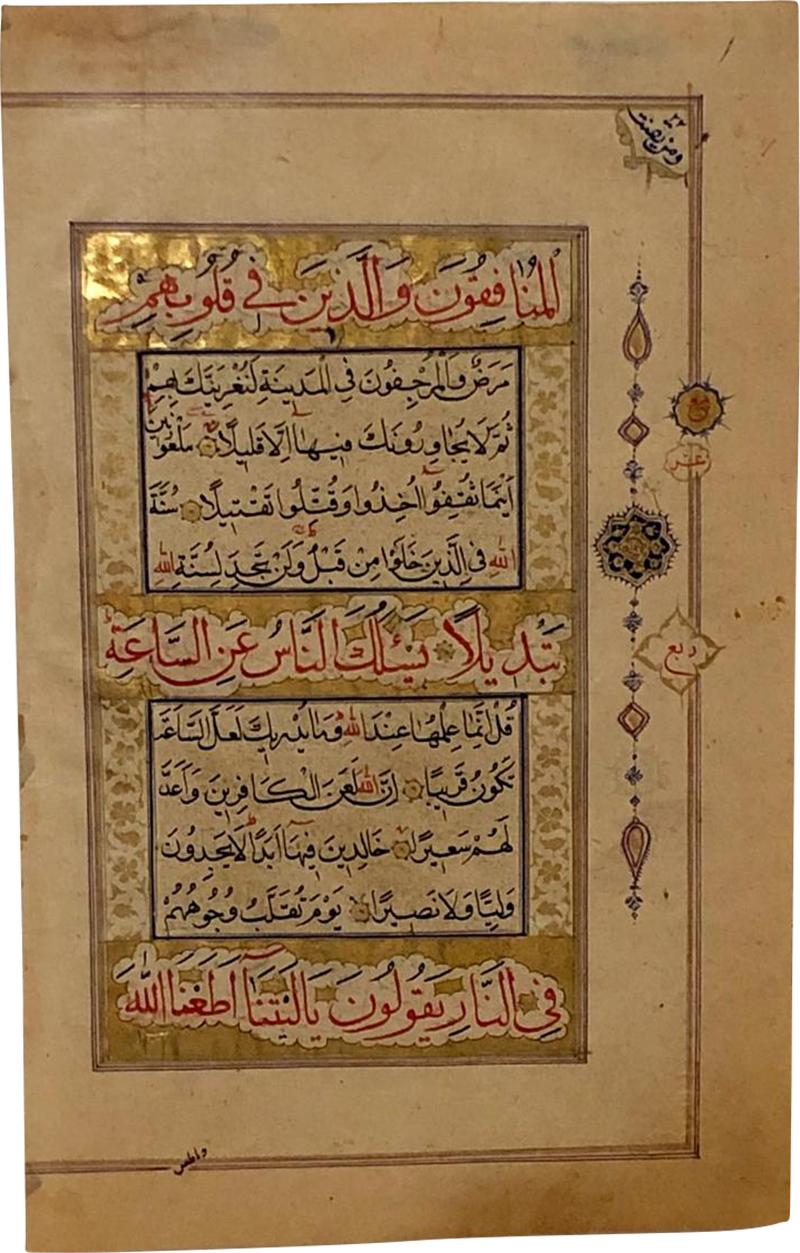 ومن يقنت ٢٢
المُنَافِقُونَ وَالَّذِينَ فِي قُلُوبِهِمْ
مَرَضٌ وَالْمُرْجِفُونَ فِي الْمَدِينَةِ لَنُغْرِيَنَّكَ بِهِمْ
ثُمَّ لَا يُجَاوِرُونَكَ فِيهَا إِلَّا قَلِيلًا مَلْعُونِينَ
أَيْنَمَا ثُقِفُوا أُخِذُوا وَقُتِّلُوا تَقْتِيلًا سُنَّةَ
اللهِ فِي الَّذِينَ خَلَوْا مِنْ قَبْلُ وَلَنْ تَجِدَ لِسُنَّةِ اللهِ
تَبْدِيلًا يَسْئَلُكَ النَّاسُ عَنِ السَّاعَةِ
قُلْ إِنَّمَا عِلْمُهَا عِنْدَ اللهِ وَمَا يُدْرِيكَ لَعَلَّ السَّاعَةَ
تَكُونُ قَرِيبًا إِنَّ اللهَ لَعَنَ الْكَافِرِينَ وَأَعَدَّ
لَهُمْ سَعِيرًا خَالِدِينَ فِيهَا أَبَدًا لَا يَجِدُونَ
وَلِيًّا وَلَا نَصِيرًا يَوْمَ تُقَلَّبُ وُجُوهُهُمْ
فِي النَّارِ يَقُولُونَ يَا لَيْتَنَا أَطَعْنَا اللهَ
عشر
ربع